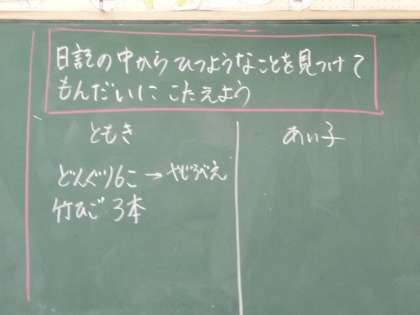 日記の中からひつようなことを見つけて
もんだいに こたえよう
ともき
あい子
どんぐり6こ→やじろべえ
竹ひご 3本